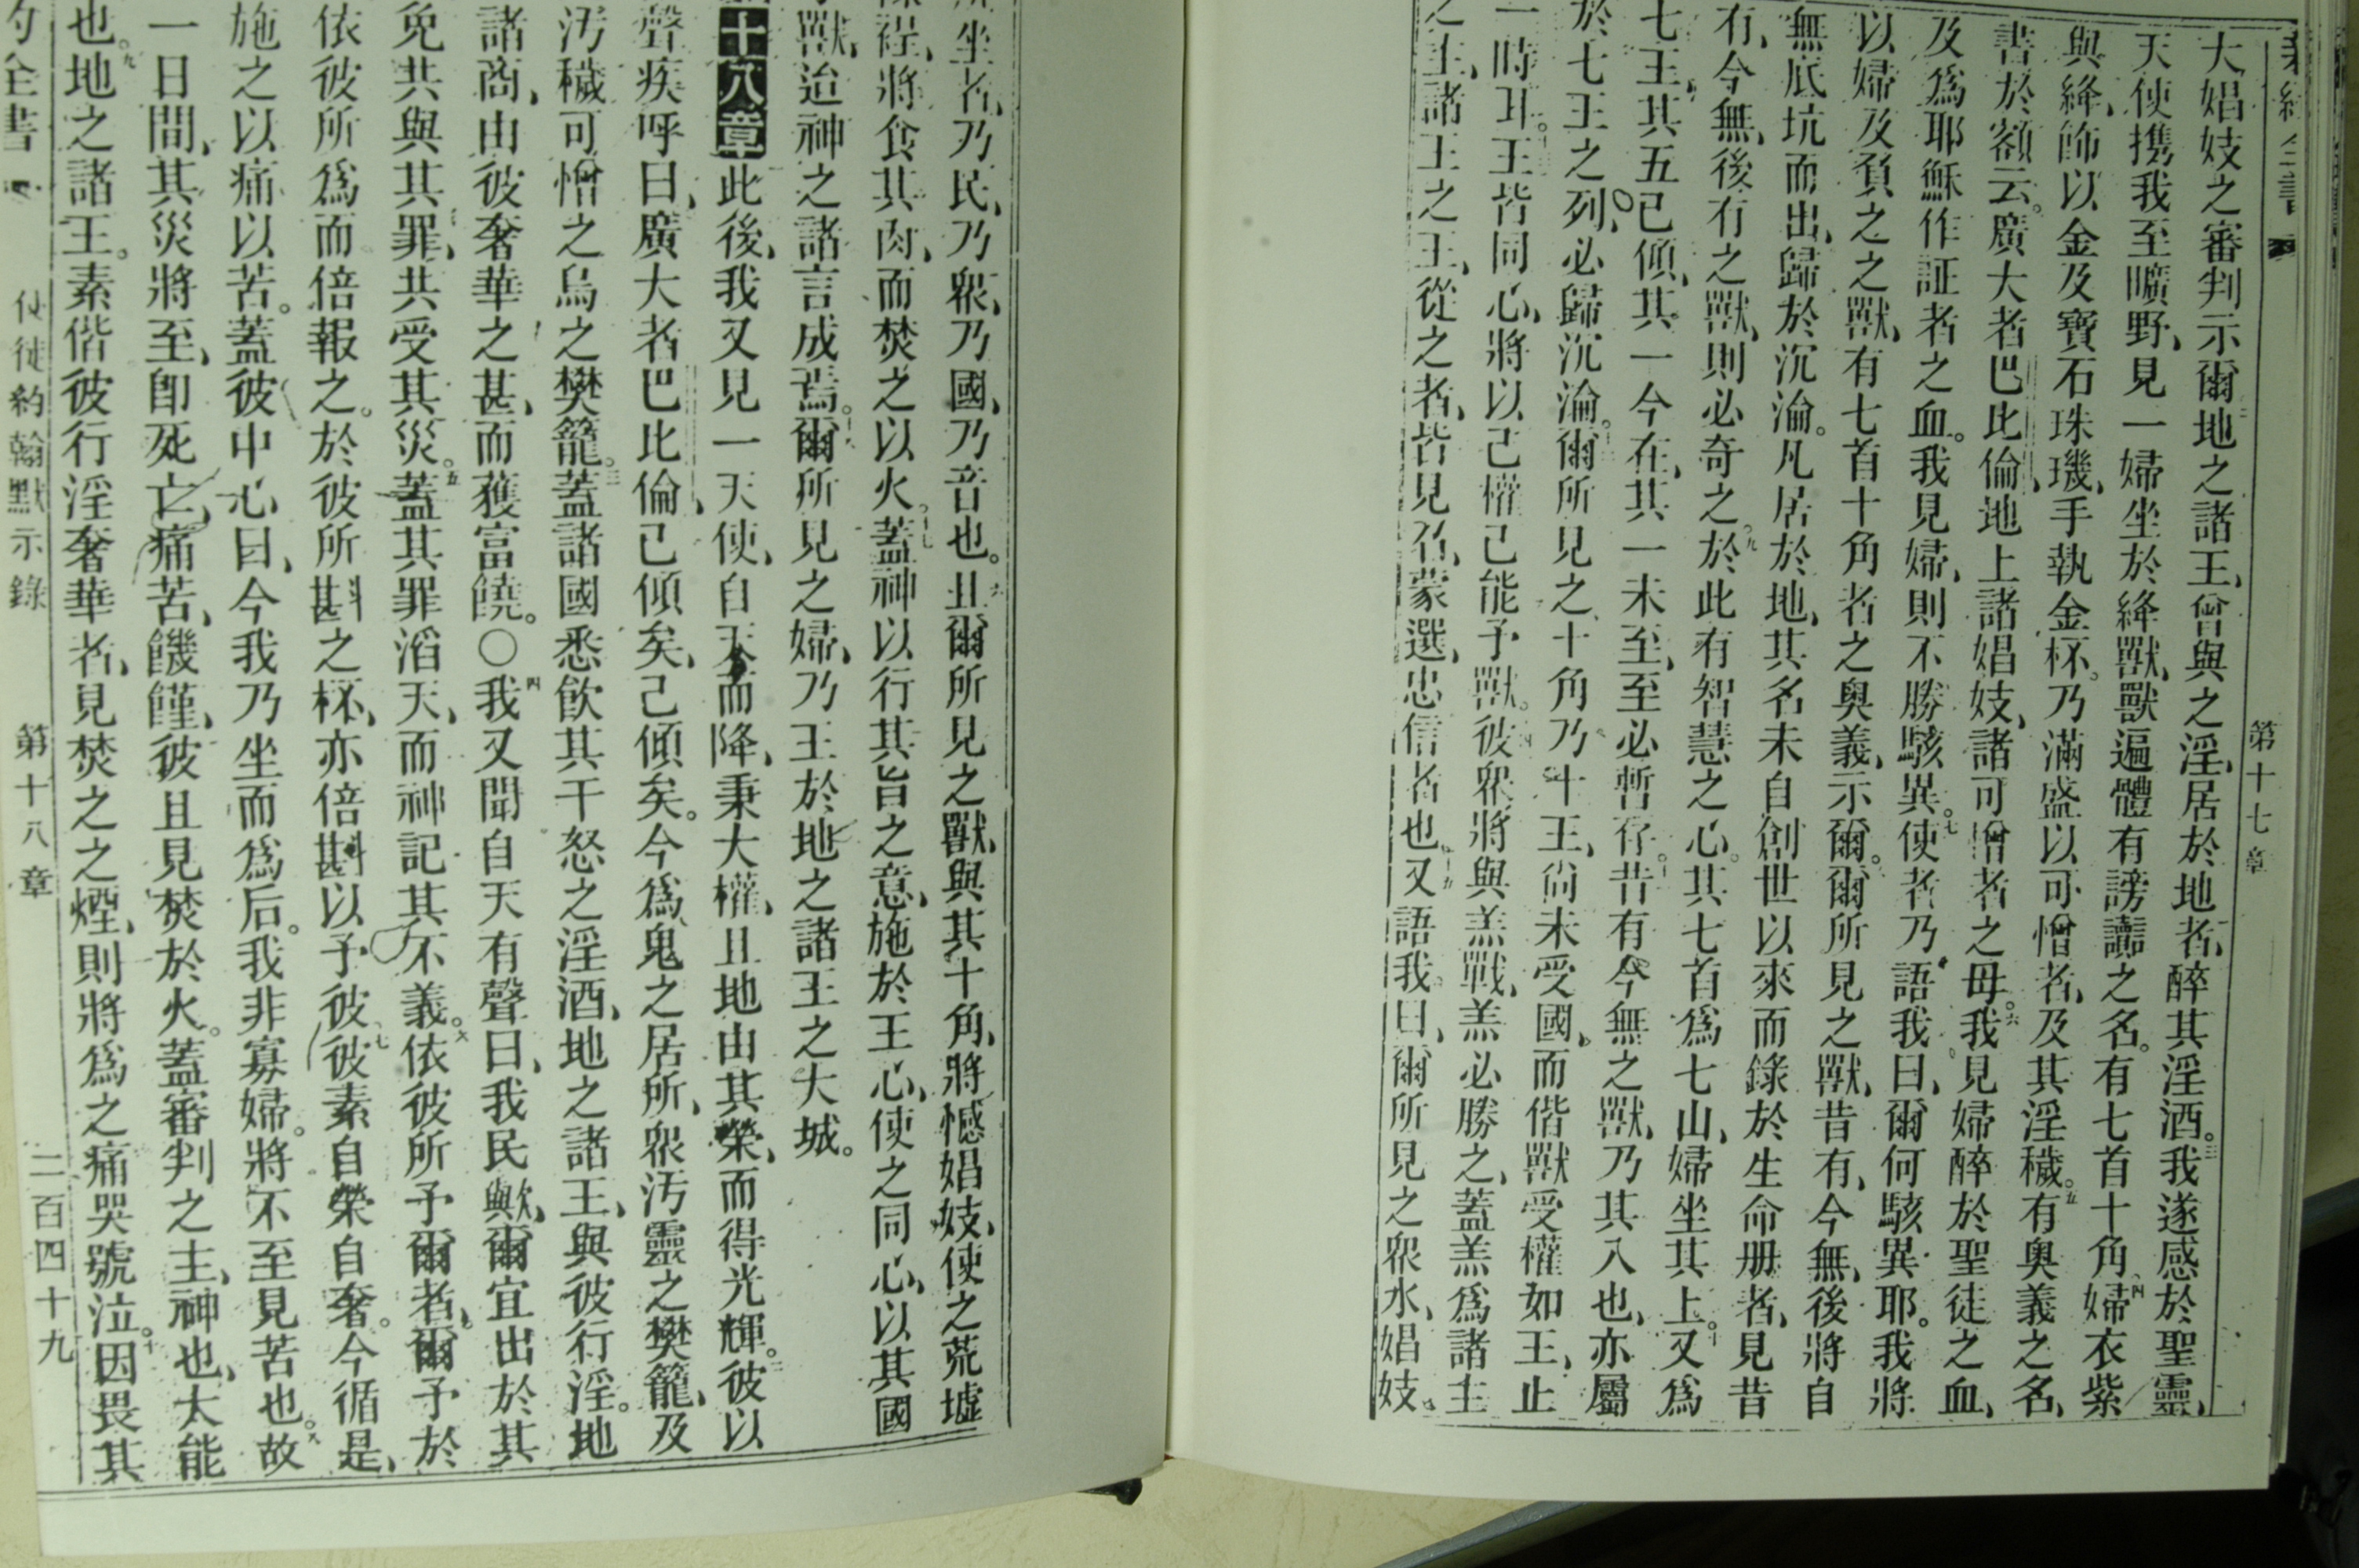 第十七章
大娼妓之審判示爾地之諸王、曾與之淫、居於地者、醉其淫酒。三我遂感於聖靈、
天使攜我至曠野、見一婦坐於絳獸、獸遍體有謗讟之名。有七首十角。四婦衣紫
與絳、飾以金及寶石珠璣、手執金杯。乃滿盛以可憎者、及其淫穢。五有奧義之名、
書於額云。廣大者巴比倫、地上諸娼妓、諸可憎者之母。六我見婦醉於聖徒之血、
及爲耶穌作証者之血。我見婦、則不勝駭異。七使者乃語我曰、爾何駭異耶。我將
以婦及負之之獸、有七首十角者之奧義、示爾。爾所見之獸、昔有、今無、後將自
無底坑而出、歸於沉淪。凡居於地、其名未自創世以來而錄於生命册者、見昔
有、今無、後有之獸、則必奇之。九於此有智慧之心。其七首爲七山、婦坐其上。十又爲
七王、其五已傾、其一今在、其一未至、至必暫存。昔有今無之獸、乃其八也、亦屬
於七王之列、必歸沉淪。爾所見之十角乃十王、尙未受國、而偕獸受權如王、止
一時耳。王皆同心、將以己權己能予獸。彼衆將與羔戰、羔必勝之、蓋羔爲諸主
之主、諸王之王、從之者、皆見召、蒙選、忠信者也。又語我曰、爾所見之衆水、娼妓
所坐者、乃民、乃衆、乃國、乃音也。且爾所見之獸、與其十角、將憾娼妓、使之荒墟
裸裎、將食其肉、而焚之以火。十七蓋神以行其旨之意、施於王心、使之同心、以其國
予獸、迨神之諸言成焉。爾所見之婦、乃王於地之諸王之大城。
十八章此後、我又見一天使、自天而降、秉大權、且地由其榮、而得光輝。二彼以
聲疾呼曰、廣大者巴比倫、已傾矣、已傾矣。今爲鬼之居所、衆汚靈之樊籠、及
汚穢可憎之鳥之樊籠。三蓋諸國悉飮其干怒之淫酒、地之諸王、與彼行淫。地
諸商、由彼奢華之甚、而獲富饒。〇四我又聞自天有聲曰、我民歟、爾宜出於其
免共與其罪、共受其災。五蓋其罪滔天、而神記其不義。六依彼所予爾者、爾予於
依彼所爲而倍報之。於彼所斟之杯、亦倍斟以予彼。七彼素自榮自奢。今循是、
施之以痛以苦。蓋彼中心曰、今我乃坐而爲后。我非寡婦。將不至見苦也。八故
一日間、其災將至、卽死亡、痛苦、饑饉、彼且見焚於火。蓋審判之主、神也、大能
也。九地之諸王。素偕彼行淫奢華者、見焚之之煙、則將爲之痛哭號泣。十因畏其
約全書　使徒約翰默示錄　第十八章　二百四十九